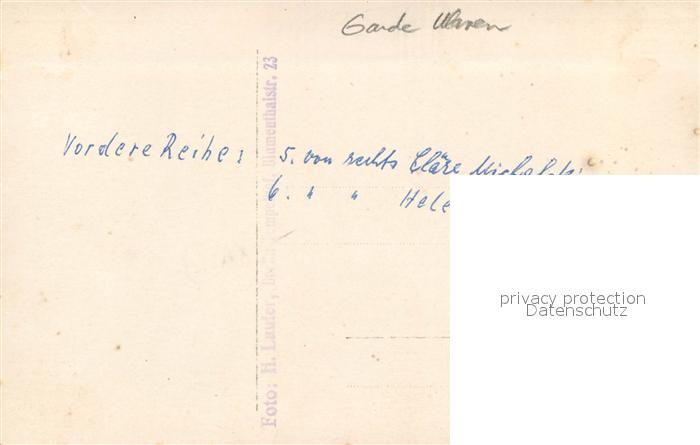 Garde Uhren
Vordere Reihe: 5. von rechts Cläre
6. " " Hele
Foto: H. Laufer, Blumenthalstr. 23
privacy protection
Datenschutz